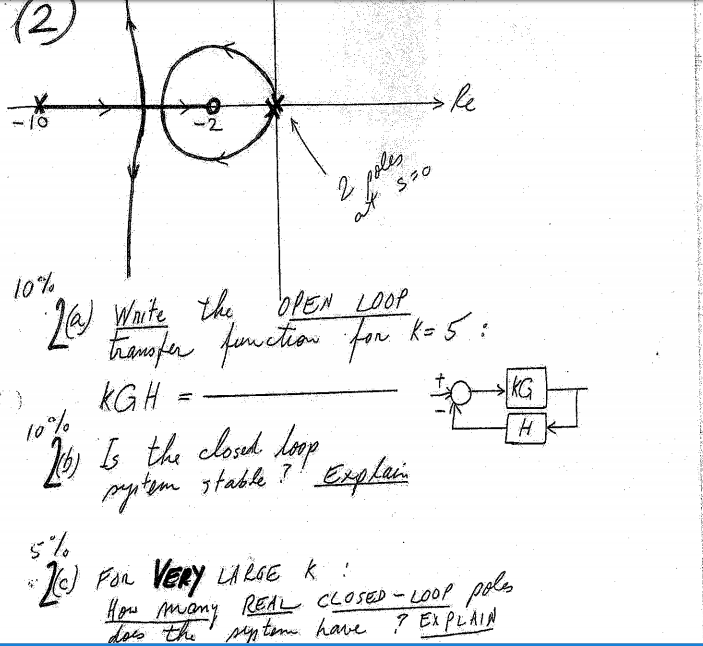 (2)
Re
-10
-2
2 poles
at s=0
10%
2(a) Write the OPEN LOOP
transfer function for K=5 :
KGH =
+
-
KG
H
10%
2(b) Is the closed loop
system stable? Explain
5%
2(c) FOR VERY LARGE K :
How many REAL CLOSED-LOOP poles
does the system have ? EXPLAIN